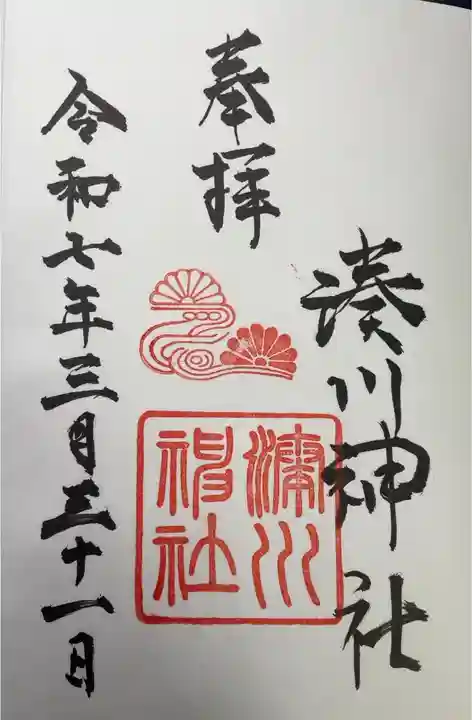 湊川神社
奉拝
湊川
神社
令和七年三月三十一日